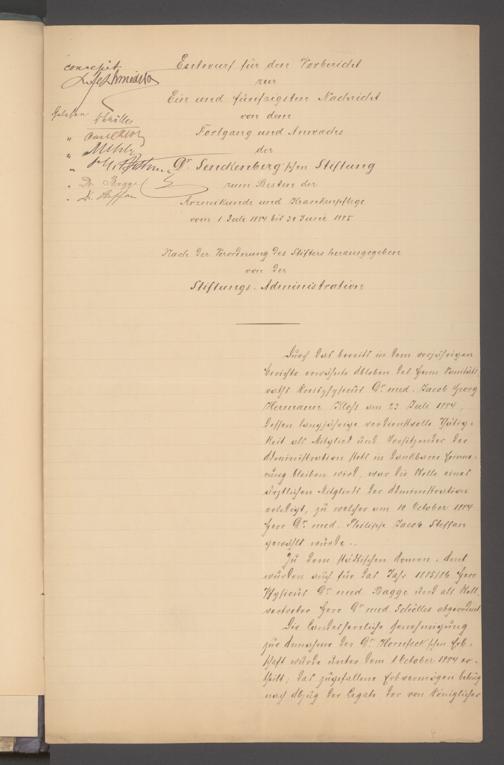 concepit
L. Schmidt
Gelesen Schölles
"
" Mehlz
"
" Dr. Bagge
" Dr. Steffan
Entwurf für den Vorbericht
zur
Ein und fünfzigsten Nachricht
von dem
Fortgang und Anwachs
der
Dr. Senckenberg'schen Stiftung
zum Besten der
Arzneikunde und Krankenpflege
vom 1 Juli 1884 bis 30 Junie 1885
Nach der Verordnung des Stifters herausgegeben
von der
Stiftungs-Administration
Durch das bereits in dem vorjährigen
Berichte erwähnte Ableben des Herrn Sanitäts
raths Kreisphysicus Dr. med. Jacob Georg
Hermann Kloß am 23 Juli 1884,
dessen langjährige verdienstvolle Thätig-
keit als Mitglied und Vorsitzender der
Administration stets in dankbarer Erinne-
rung bleiben wird, war die Stelle eines
ärztlichen Mitglieds der Administration
erledigt, zu welcher am 10 October 1884
Herr Dr. med. Philipp Jacob Steffan
gewählt wurde.
Zu dem städtischen Armen-Amt
wurden auch für das Jahr 1885/86 Herr
Physicus Dr. med. Bagge und als Stell-
vertreter Herr Dr. med. Schölles abgeordnet
Die landesherrliche Genehmigung
zur Annahme der Dr. Horneck'schen Erb-
schaft wurde unter dem 1 October 1884 er-
theilt; das zugefallene Erbvermögen betrug
nach Abzug der Legate der von Königlicher